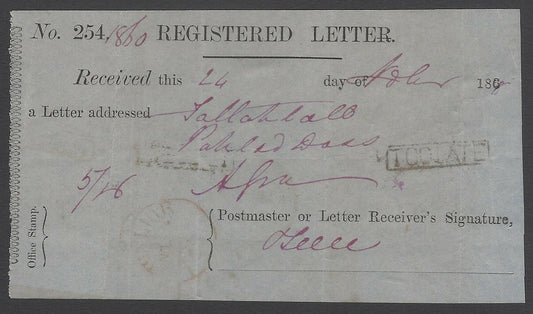 No. 254/1860 REGISTERED LETTER.
Received this 24 day of 186
a Letter addressed
Pahlad Dass
TOO LATE
5/16 Agra
Postmaster or Letter Receiver's Signature,
Office Stamp.